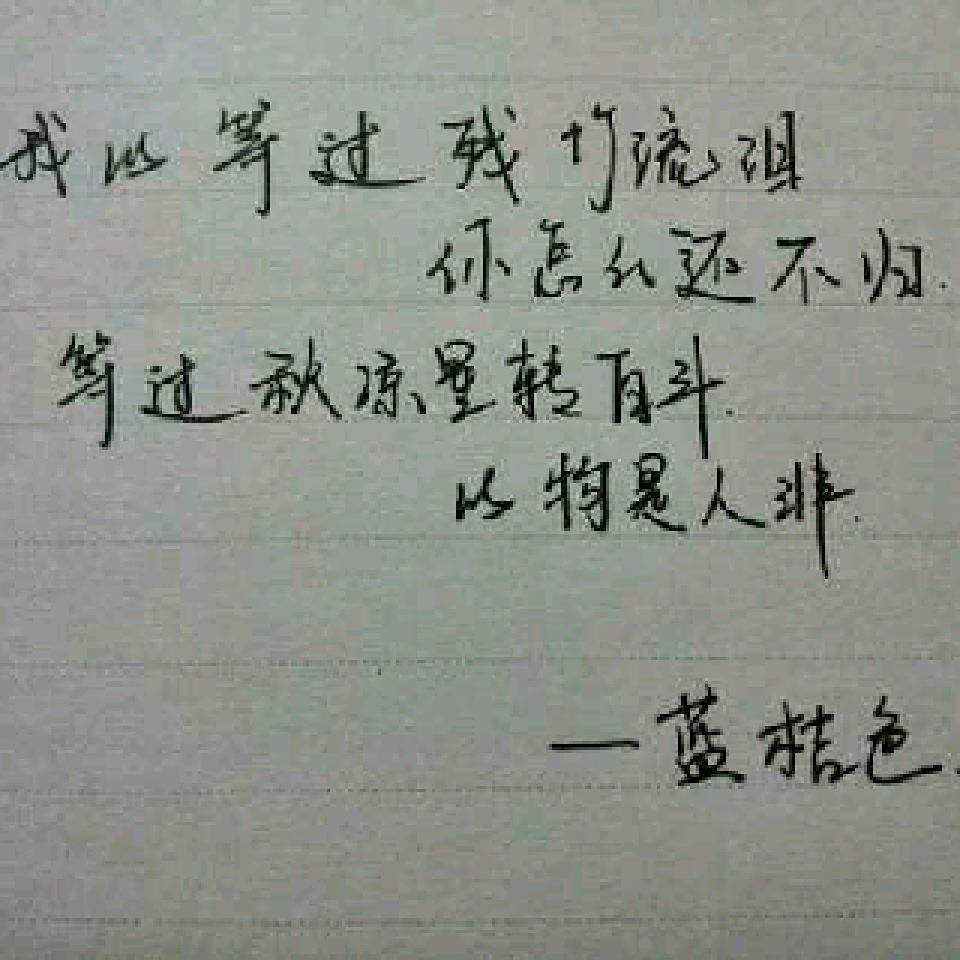 我以等过残竹流沮
你怎么还不归.
等过秋凉星转百斗.
以物是人非.
—蓝桔色.